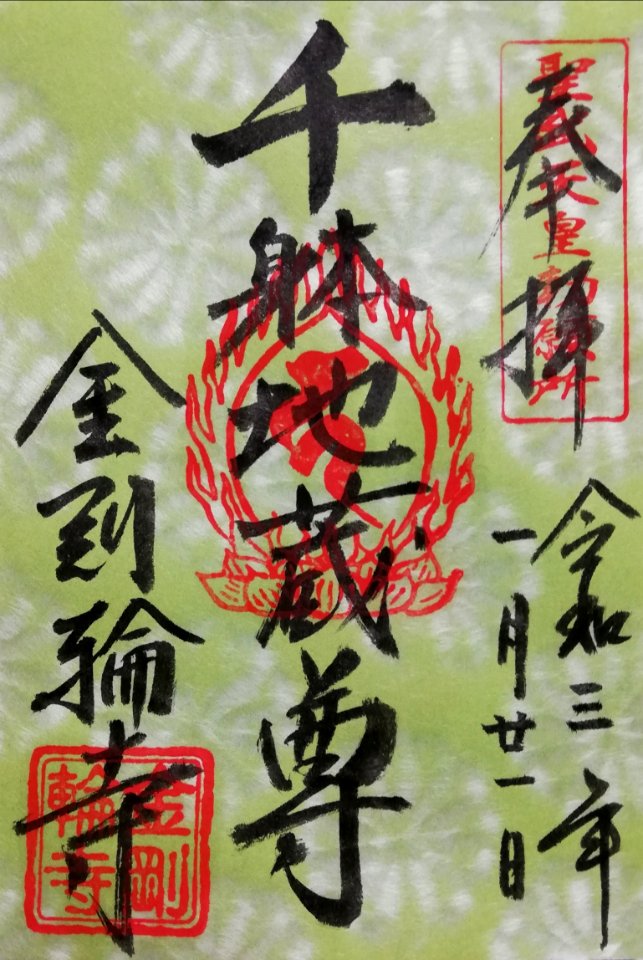 奉拝
聖武天皇勅願所
令和三年
一月廿一日
千躰地蔵尊
金剛輪寺
金剛輪寺